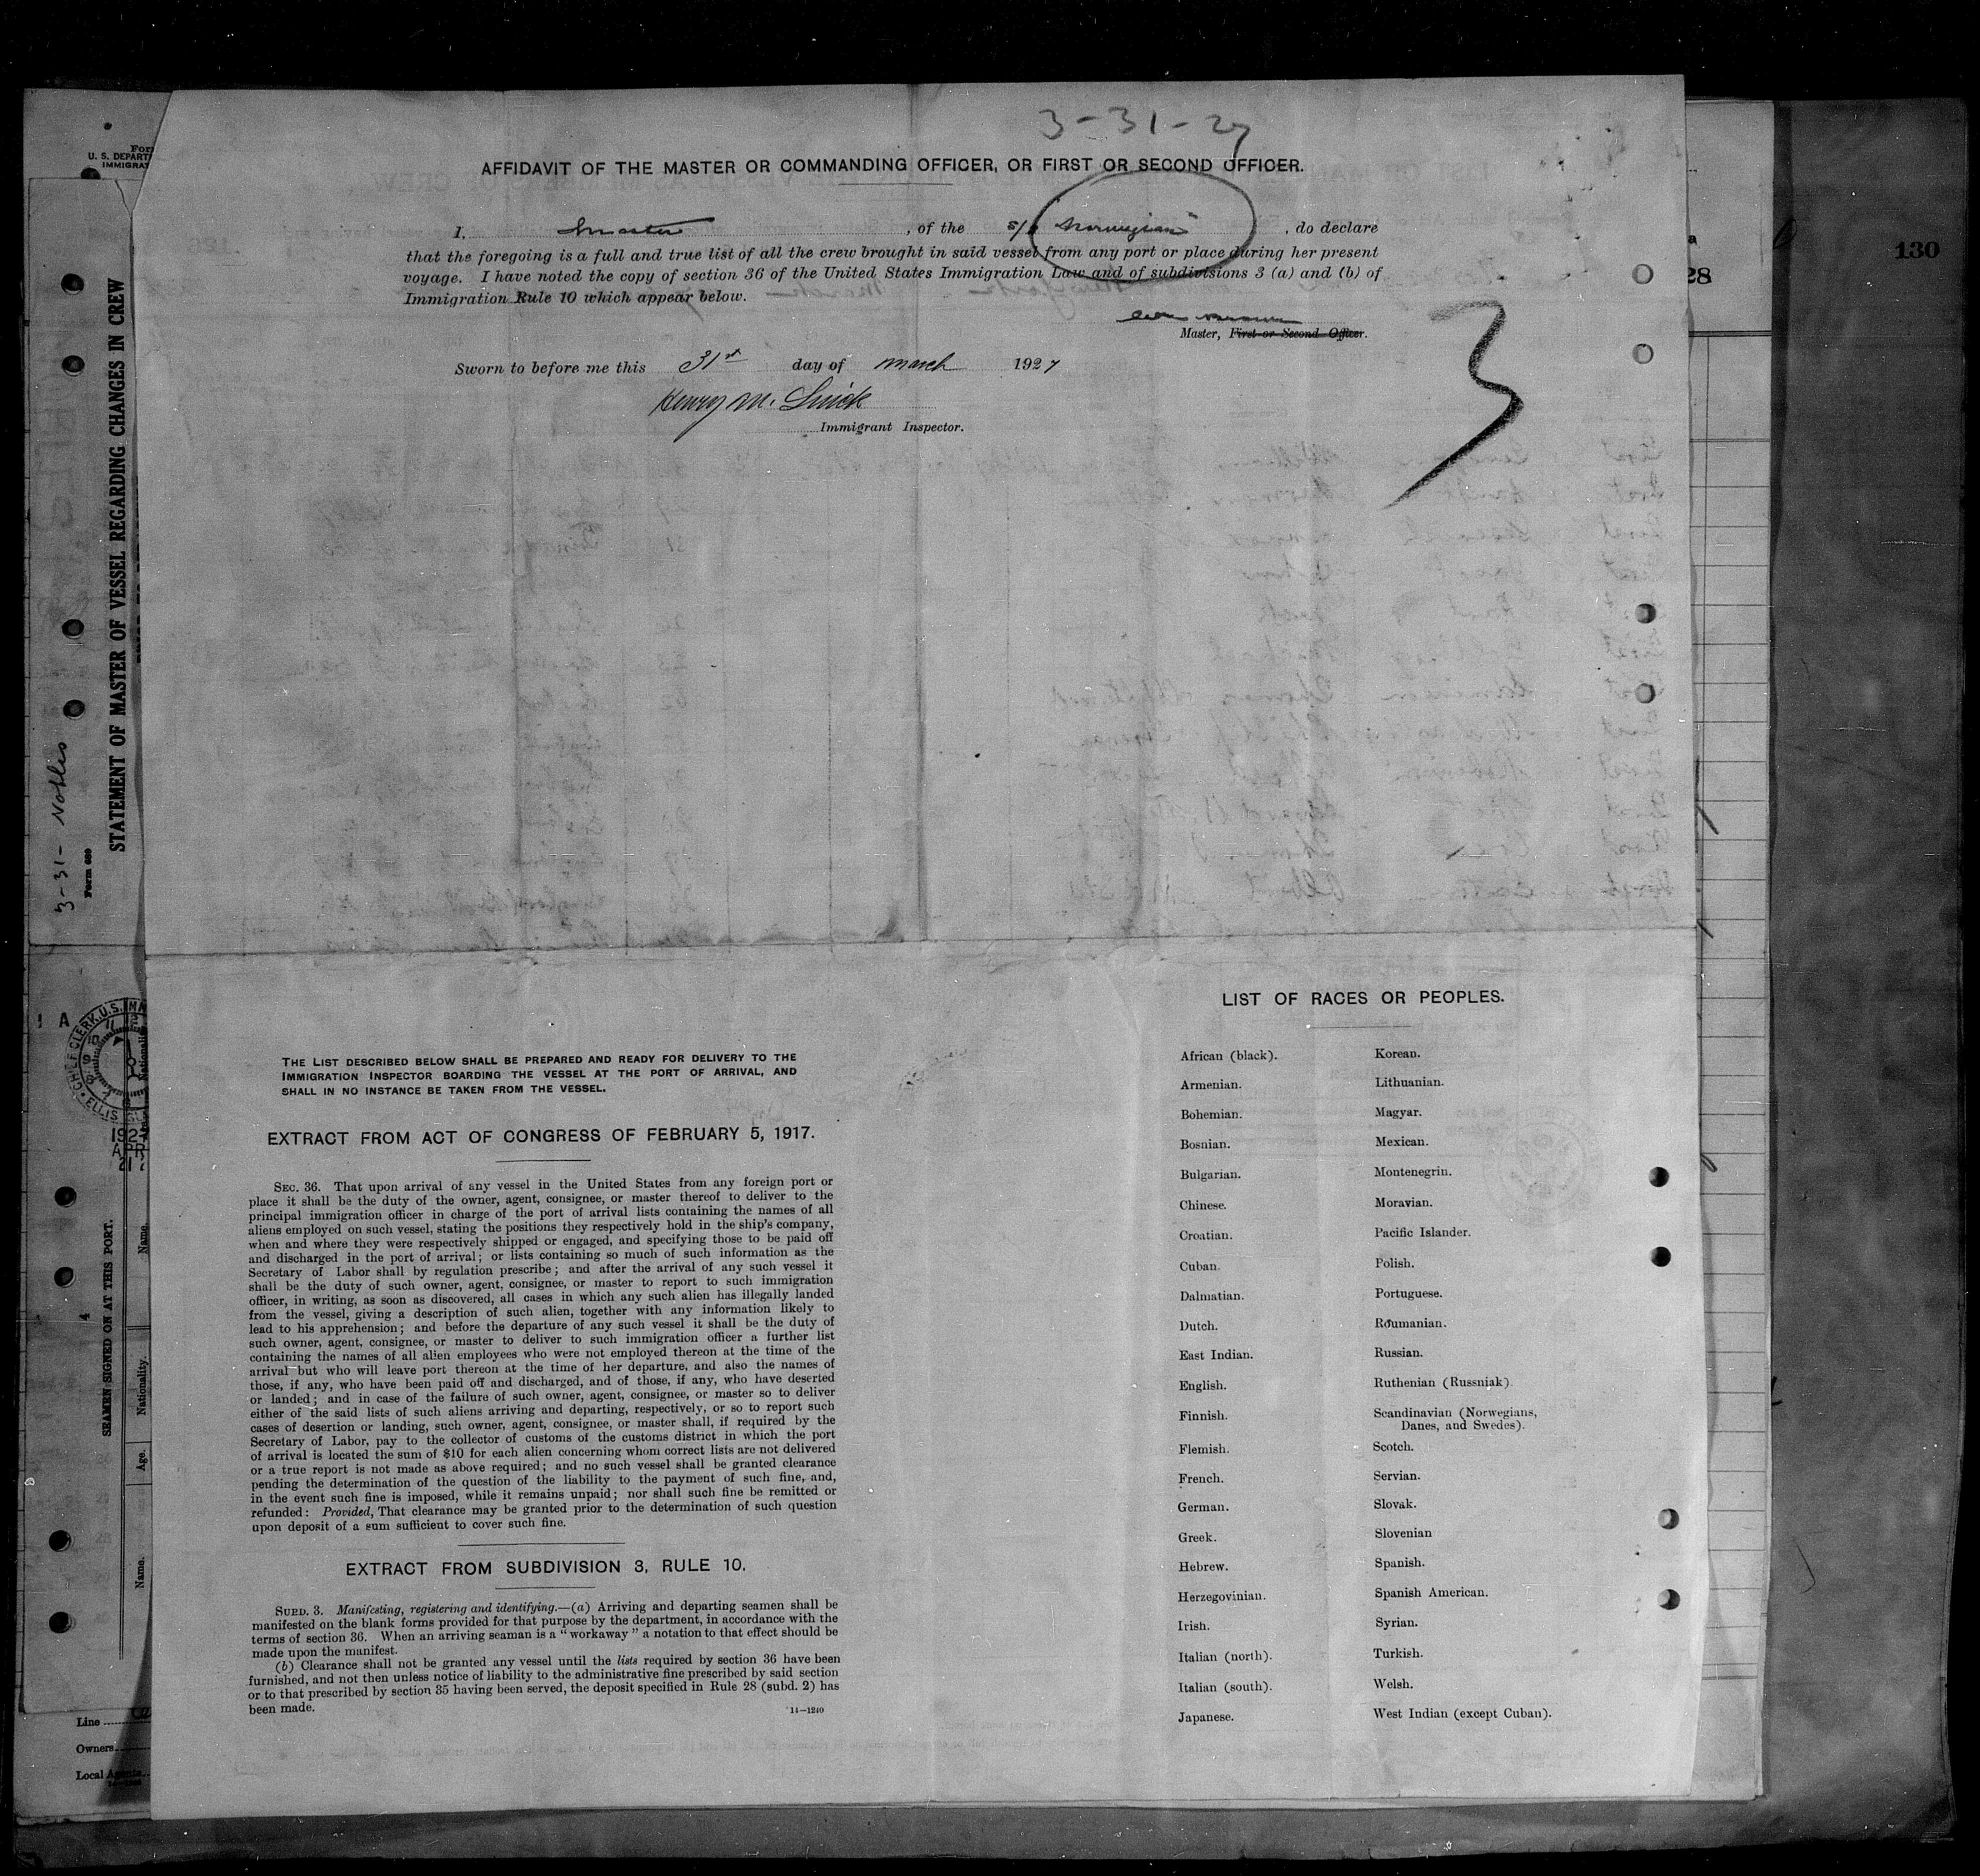 3-31-27
AFFIDAVIT OF THE MASTER OR COMMANDING OFFICER, OR FIRST OR SECOND OFFICER.
I, Master, of the s/s "Norwegian", do declare
that the foregoing is a full and true list of all the crew brought in said vessel from any port or place during her present
voyage. I have noted the copy of section 36 of the United States Immigration Law and of subdivisions 3 (a) and (b) of
Immigration Rule 10 which appear below.
Master, First or Second Officer.
Sworn to before me this 31st day of March 1927
Henry M.
Immigrant Inspector.
3
THE LIST DESCRIBED BELOW SHALL BE PREPARED AND READY FOR DELIVERY TO THE
IMMIGRATION INSPECTOR BOARDING THE VESSEL AT THE PORT OF ARRIVAL, AND
SHALL IN NO INSTANCE BE TAKEN FROM THE VESSEL.
EXTRACT FROM ACT OF CONGRESS OF FEBRUARY 5, 1917.
SEC. 36. That upon arrival of any vessel in the United States from any foreign port or
place it shall be the duty of the owner, agent, consignee, or master thereof to deliver to the
principal immigration officer in charge of the port of arrival lists containing the names of all
aliens employed on such vessel, stating the positions they respectively hold in the ship's company,
when and where they were respectively shipped or engaged, and specifying those to be paid off
and discharged in the port of arrival; or lists containing so much of such information as the
Secretary of Labor shall by regulation prescribe; and after the arrival of any such vessel it
shall be the duty of such owner, agent, consignee, or master to report to such immigration
officer, in writing, as soon as discovered, all cases in which any such alien has illegally landed
from the vessel, giving a description of such alien, together with any information likely to
lead to his apprehension; and before the departure of any such vessel it shall be the duty of
such owner, agent, consignee, or master to deliver to such immigration officer a further list
containing the names of all alien employees who were not employed thereon at the time of the
arrival but who will leave port thereon at the time of her departure, and also the names of
those, if any, who have been paid off and discharged, and of those, if any, who have deserted
or landed; and in case of the failure of such owner, agent, consignee, or master so to deliver
either of the said lists of such aliens arriving and departing, respectively, or so to report such
cases of desertion or landing, such owner, agent, consignee, or master shall, if required by the
Secretary of Labor, pay to the collector of customs of the customs district in which the port
of arrival is located the sum of $10 for each alien concerning whom correct lists are not delivered
or a true report is not made as above required; and no such vessel shall be granted clearance
pending the determination of the question of the liability to the payment of such fine, and,
in the event such fine is imposed, while it remains unpaid; nor shall such fine be remitted or
refunded: Provided, That clearance may be granted prior to the determination of such question
upon deposit of a sum sufficient to cover such fine.
EXTRACT FROM SUBDIVISION 3, RULE 10.
SUBD. 3. Manifesting, registering and identifying.—(a) Arriving and departing seamen shall be
manifested on the blank forms provided for that purpose by the department, in accordance with the
terms of section 36. When an arriving seaman is a "workaway" a notation to that effect should be
made upon the manifest.
(b) Clearance shall not be granted any vessel until the lists required by section 36 have been
furnished, and not then unless notice of liability to the administrative fine prescribed by said section
or to that prescribed by section 35 having been served, the deposit specified in Rule 28 (subd. 2) has
been made.
14—1240
LIST OF RACES OR PEOPLES.
African (black).
Armenian.
Bohemian.
Bosnian.
Bulgarian.
Chinese.
Croatian.
Cuban.
Dalmatian.
Dutch.
East Indian.
English.
Finnish.
Flemish.
French.
German.
Greek.
Hebrew.
Herzegovinian.
Irish.
Italian (north).
Italian (south).
Japanese.
Korean.
Lithuanian.
Magyar.
Mexican.
Montenegrin.
Moravian.
Pacific Islander.
Polish.
Portuguese.
Roumanian.
Russian.
Ruthenian (Russniak)
Scandinavian (Norwegians,
Danes, and Swedes).
Scotch.
Servian.
Slovak.
Slovenian
Spanish.
Spanish American.
Syrian.
Turkish.
Welsh.
West Indian (except Cuban).
130
28
U. S. DEPART
IMMIGRAT
STATEMENT OF MASTER OF VESSEL REGARDING CHANGES IN CREW
Form 689
3-31-
CHIEF CLERK, U.S.
ELLIS
APR
SEAMEN SIGNED ON AT THIS PORT.
4
Name.
Nationality.
Age.
Name.
Line
Owners
Local Agents